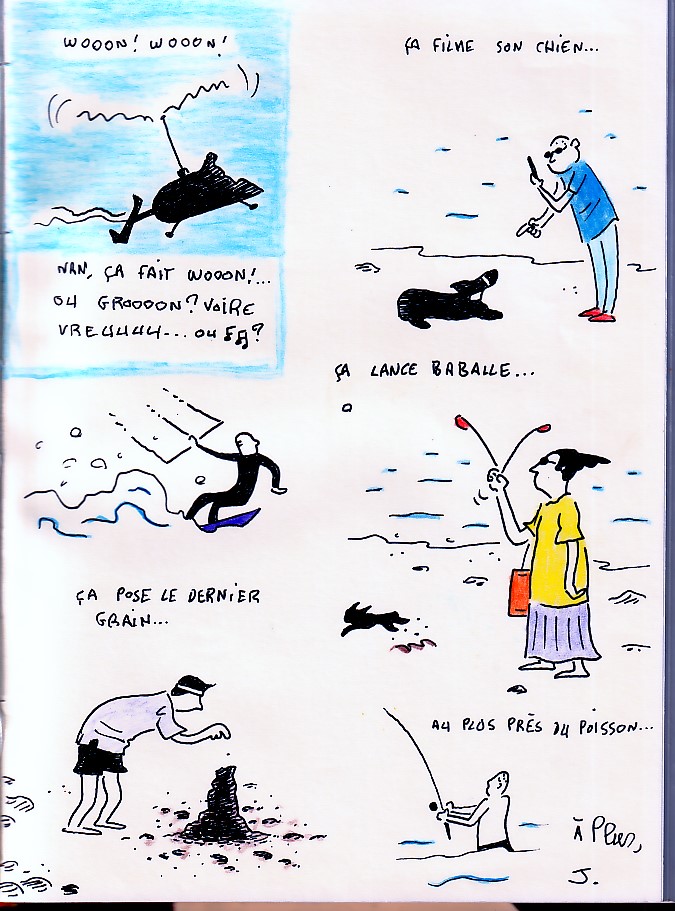 WOOON! WOOON!
NAN, ÇA FAIT WOOON!...
OU GROOOON? VOIRE
VREUUUU... OU
ÇA POSE LE DERNIER
GRAIN...
ÇA FILME SON CHIEN...
ÇA LANCE BABALLE...
AU PLUS PRÈS DU POISSON...
À Plus,
J.